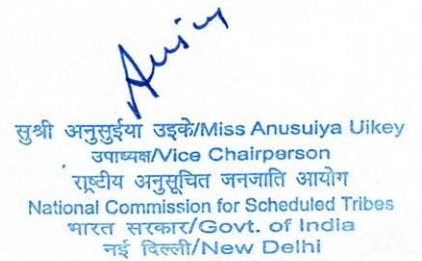 Anusuy
सुश्री अनुसुईया उइके/Miss Anusuiya Uikey
उपाध्यक्ष/Vice Chairperson
राष्ट्रीय अनुसूचित जनजाति आयोग
National Commission for Scheduled Tribes
भारत सरकार/Govt. of India
नई दिल्ली/New Delhi